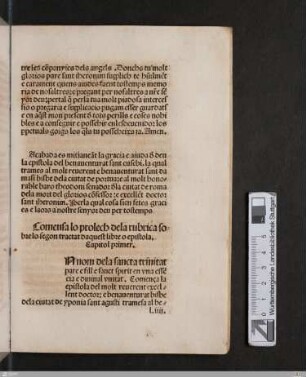 tre les cõpenyies dels angels. Donchs tu molt
glorios pare sant iheronim suplich te hũilmẽt
e carament quens aiudes faent tostemps memo
ria de nosaltres e pregant per nosaltres a nr̃e se
nyor deu
sio e pregaria e suplicacio pugam esser guardats
e en aq̃st mon present
bles e a conseguir e possehir en lesdevenidor los
perpetuals goigs los q̃ls tu posseheixs ia. Amen.
Acabada es mitiançãt la gracia e aiuda d̃ deu
la epistola del benauenturat sant eusebi. la qual
trames al molt reuerent e benauenturat sant da
mas bisbe dela ciutat de portuense e al molt honor
rable baro theodoni senador d̃la ciutat de roma
dela mort del glorios cõfessor e excellẽt doctor
sant iheronim. Perla qual cosa sien fetes graci
es e laors a nostre senyor deu per tostemps.
Comensa lo prolech dela rubrica so
bre lo segon tractat daquest libre o epistola.
Capitol primer.
N nom dela sancta trinitat
pare e fill e sanct sperit en vna essẽ
cia e diuinal vnitat. Comença la
epistola del molt reuerent excel
lent doctor e benauenturat bisbe
dela ciutat de yponia sant agusti tramesa al be
l.iiii.
Württembergische Landesbibliothek Stuttgart